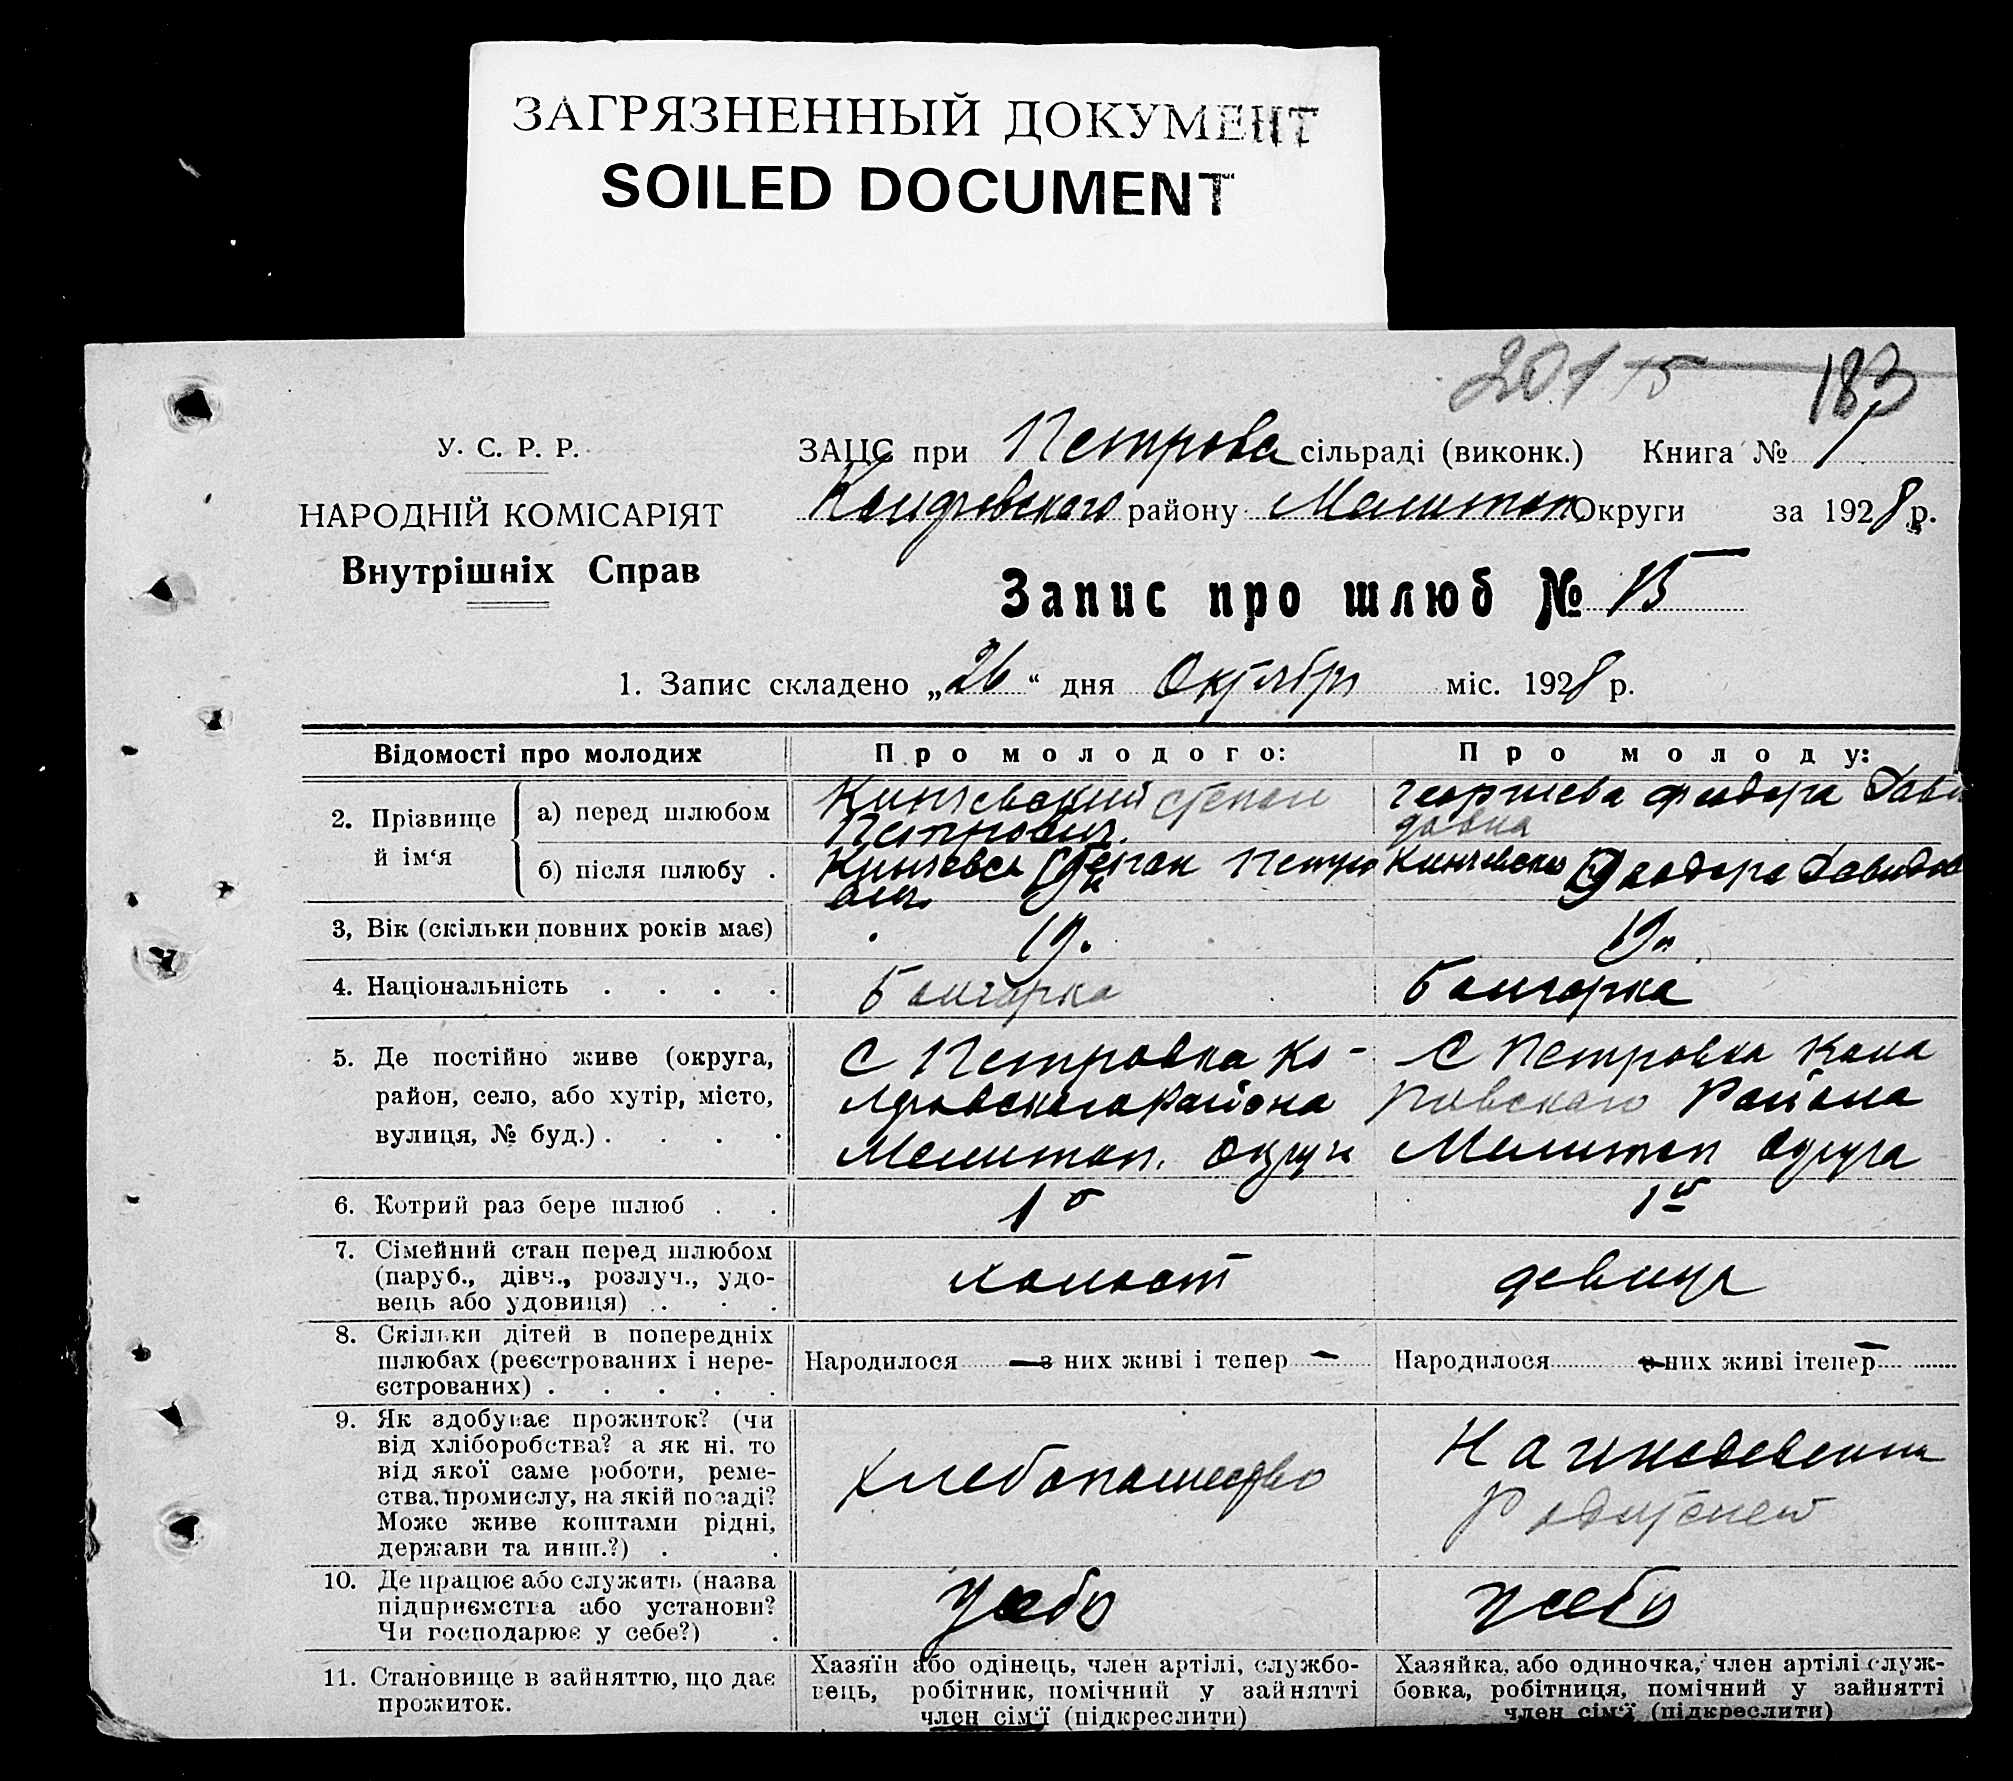 ЗАГРЯЗНЕННЫЙ ДОКУМЕНТ
SOILED DOCUMENT
183
У. С. Р. Р.
НАРОДНІЙ КОМІСАРІЯТ
Внутрішніх Справ
ЗАЦС при Петрова сільраді (виконк.) Книга № 1
району Мелитоп. Округи за 1928 р.
Запис про шлюб № 15
1. Запис складено „26“ дня Октября міс. 1928 р.
Відомості про молодих
Про молодого:
Про молоду:
2. Прізвище й ім‘я
а) перед шлюбом
Степан
Петрович.
Георгиева Феодора Дави
довна
б) після шлюбу .
Степан Петро
вич.
Феодора Давидов
3, Вік (скільки повних років має)
19.
19.
4. Національність . . . .
Болгарка
Болгарка
5. Де постійно живе (округа,
район, село, або хутір, місто,
вулиця, № буд.) . . . .
С Петровка Ко-
района
Мелитоп. Округи
С Петровка
ровского Района
Мелитоп Округа
6. Котрий раз бере шлюб . .
1й
1й
7. Сімейний стан перед шлюбом
(паруб., дівч., розлуч., удо-
вець або удовиця) . . .
холост
девица
8. Скільки дітей в попередніх
шлюбах (реєстрованих і нере-
єстрованих) . . . . .
Народилося — з них живі і тепер —
Народилося — з них живі ітепер —
9. Як здобуває прожиток? (чи
від хліборобства? а як ні. то
від якої саме роботи, реме-
ства, промислу, на якій посаді?
Може живе коштами рідні,
держави та инш.?) . .
хлебопашество
На иждевении
Родителей
10. Де працює або служить (назва
підприємства або установи?
Чи господарює у себе?) .
у себя
у себя
11. Становище в зайняттю, що дає
прожиток.
Хазяїн або одінець, член артілі, службо-
вець, робітник, помічний у зайнятті
член сім‘ї (підкреслити)
Хазяйка, або одиночка, член артілі служ-
бовка, робітниця, помічний у зайнятті
член сім‘ї (підкреслити)